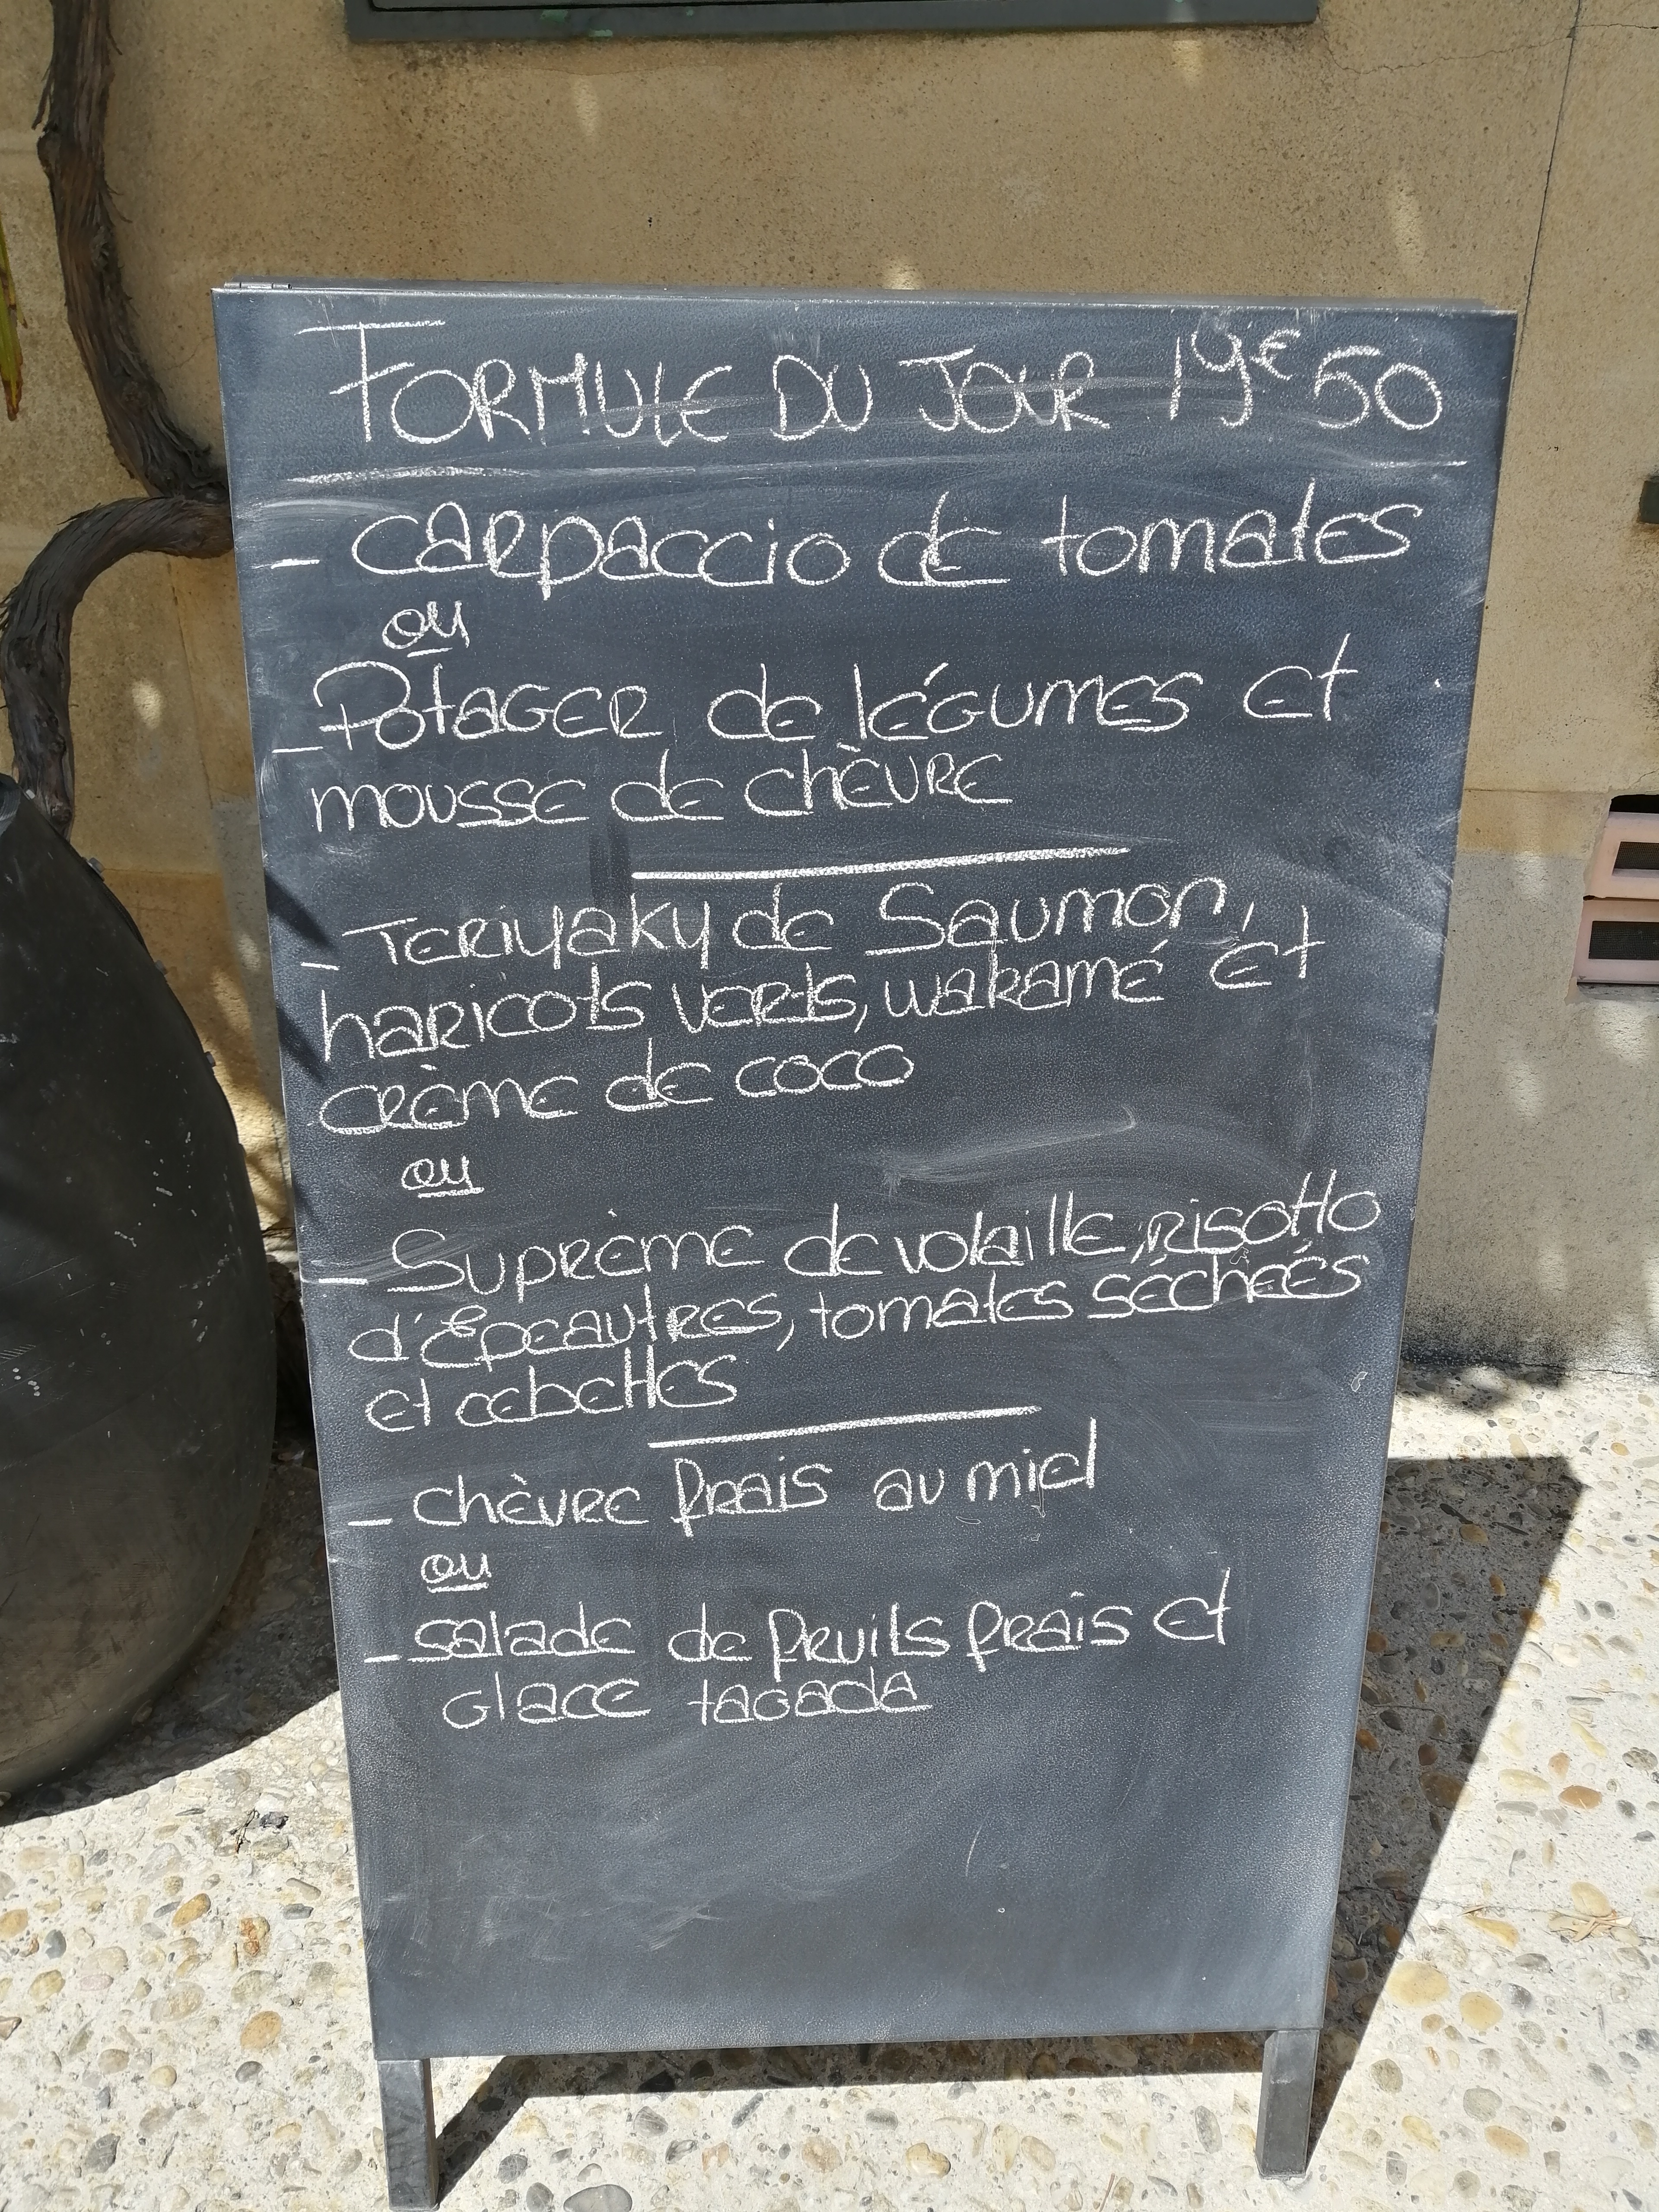 FORMULE DU JOUR 19€50
- CARPACCIO de tomates
ou
- Potager de légumes et
mousse de chèvre
- Teriyaky de Saumon,
haricots verts, wakamé et
crème de coco
ou
- Suprème de volaille, risotto
d'Epeautres, tomates séchées
et cebettes
- chèvre frais au miel
ou
- salade de fruits frais et
glace tagada